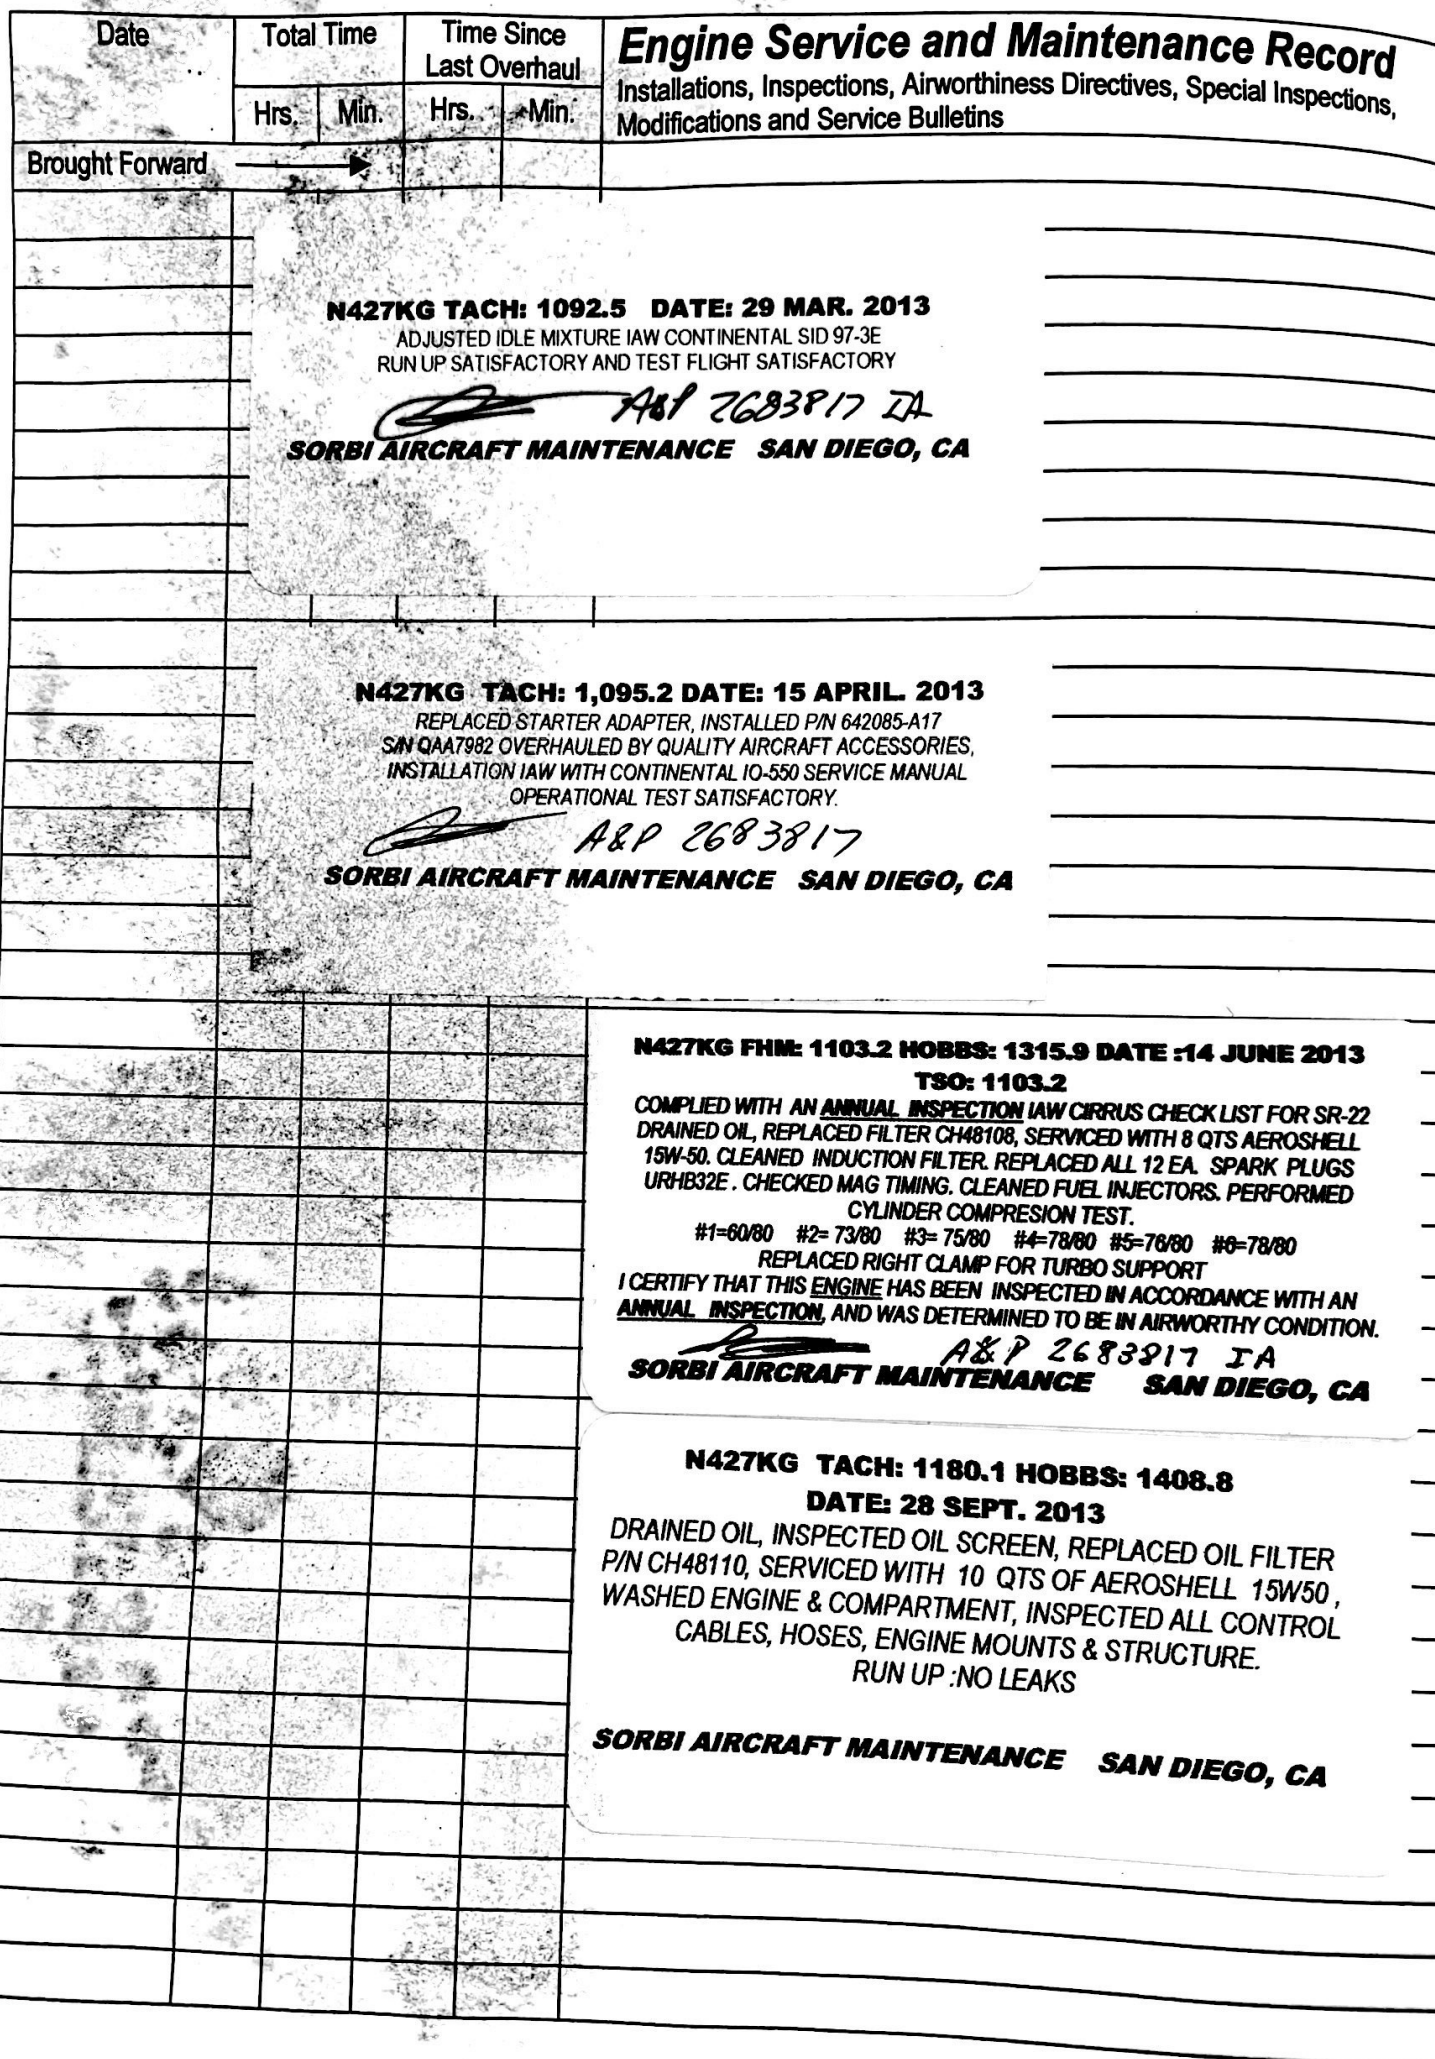 Date
Total Time
Time Since
Last Overhaul
Hrs. Min. Hrs. Min.
Engine Service and Maintenance Record
Installations, Inspections, Airworthiness Directives, Special Inspections,
Modifications and Service Bulletins
Brought Forward
N427KG TACH: 1092.5 DATE: 29 MAR. 2013
ADJUSTED IDLE MIXTURE IAW CONTINENTAL SID 97-3E
RUN UP SATISFACTORY AND TEST FLIGHT SATISFACTORY
A&P 2683817 IA
SORBI AIRCRAFT MAINTENANCE SAN DIEGO, CA
N427KG TACH: 1,095.2 DATE: 15 APRIL. 2013
REPLACED STARTER ADAPTER, INSTALLED P/N 642085-A17
S/N QAA7982 OVERHAULED BY QUALITY AIRCRAFT ACCESSORIES,
INSTALLATION IAW WITH CONTINENTAL IO-550 SERVICE MANUAL
OPERATIONAL TEST SATISFACTORY.
A&P 2683817
SORBI AIRCRAFT MAINTENANCE SAN DIEGO, CA
N427KG FHM: 1103.2 HOBBS: 1315.9 DATE :14 JUNE 2013
TSO: 1103.2
COMPLIED WITH AN ANNUAL INSPECTION IAW CIRRUS CHECK LIST FOR SR-22
DRAINED OIL, REPLACED FILTER CH48108, SERVICED WITH 8 QTS AEROSHELL
15W-50. CLEANED INDUCTION FILTER. REPLACED ALL 12 EA. SPARK PLUGS
URHB32E . CHECKED MAG TIMING. CLEANED FUEL INJECTORS. PERFORMED
CYLINDER COMPRESION TEST.
#1=60/80 #2= 73/80 #3= 75/80 #4=78/80 #5=76/80 #6=78/80
REPLACED RIGHT CLAMP FOR TURBO SUPPORT
I CERTIFY THAT THIS ENGINE HAS BEEN INSPECTED IN ACCORDANCE WITH AN
ANNUAL INSPECTION, AND WAS DETERMINED TO BE IN AIRWORTHY CONDITION.
A&P 2683817 IA
SORBI AIRCRAFT MAINTENANCE SAN DIEGO, CA
N427KG TACH: 1180.1 HOBBS: 1408.8
DATE: 28 SEPT. 2013
DRAINED OIL, INSPECTED OIL SCREEN, REPLACED OIL FILTER
P/N CH48110, SERVICED WITH 10 QTS OF AEROSHELL 15W50 ,
WASHED ENGINE & COMPARTMENT, INSPECTED ALL CONTROL
CABLES, HOSES, ENGINE MOUNTS & STRUCTURE.
RUN UP :NO LEAKS
SORBI AIRCRAFT MAINTENANCE SAN DIEGO, CA